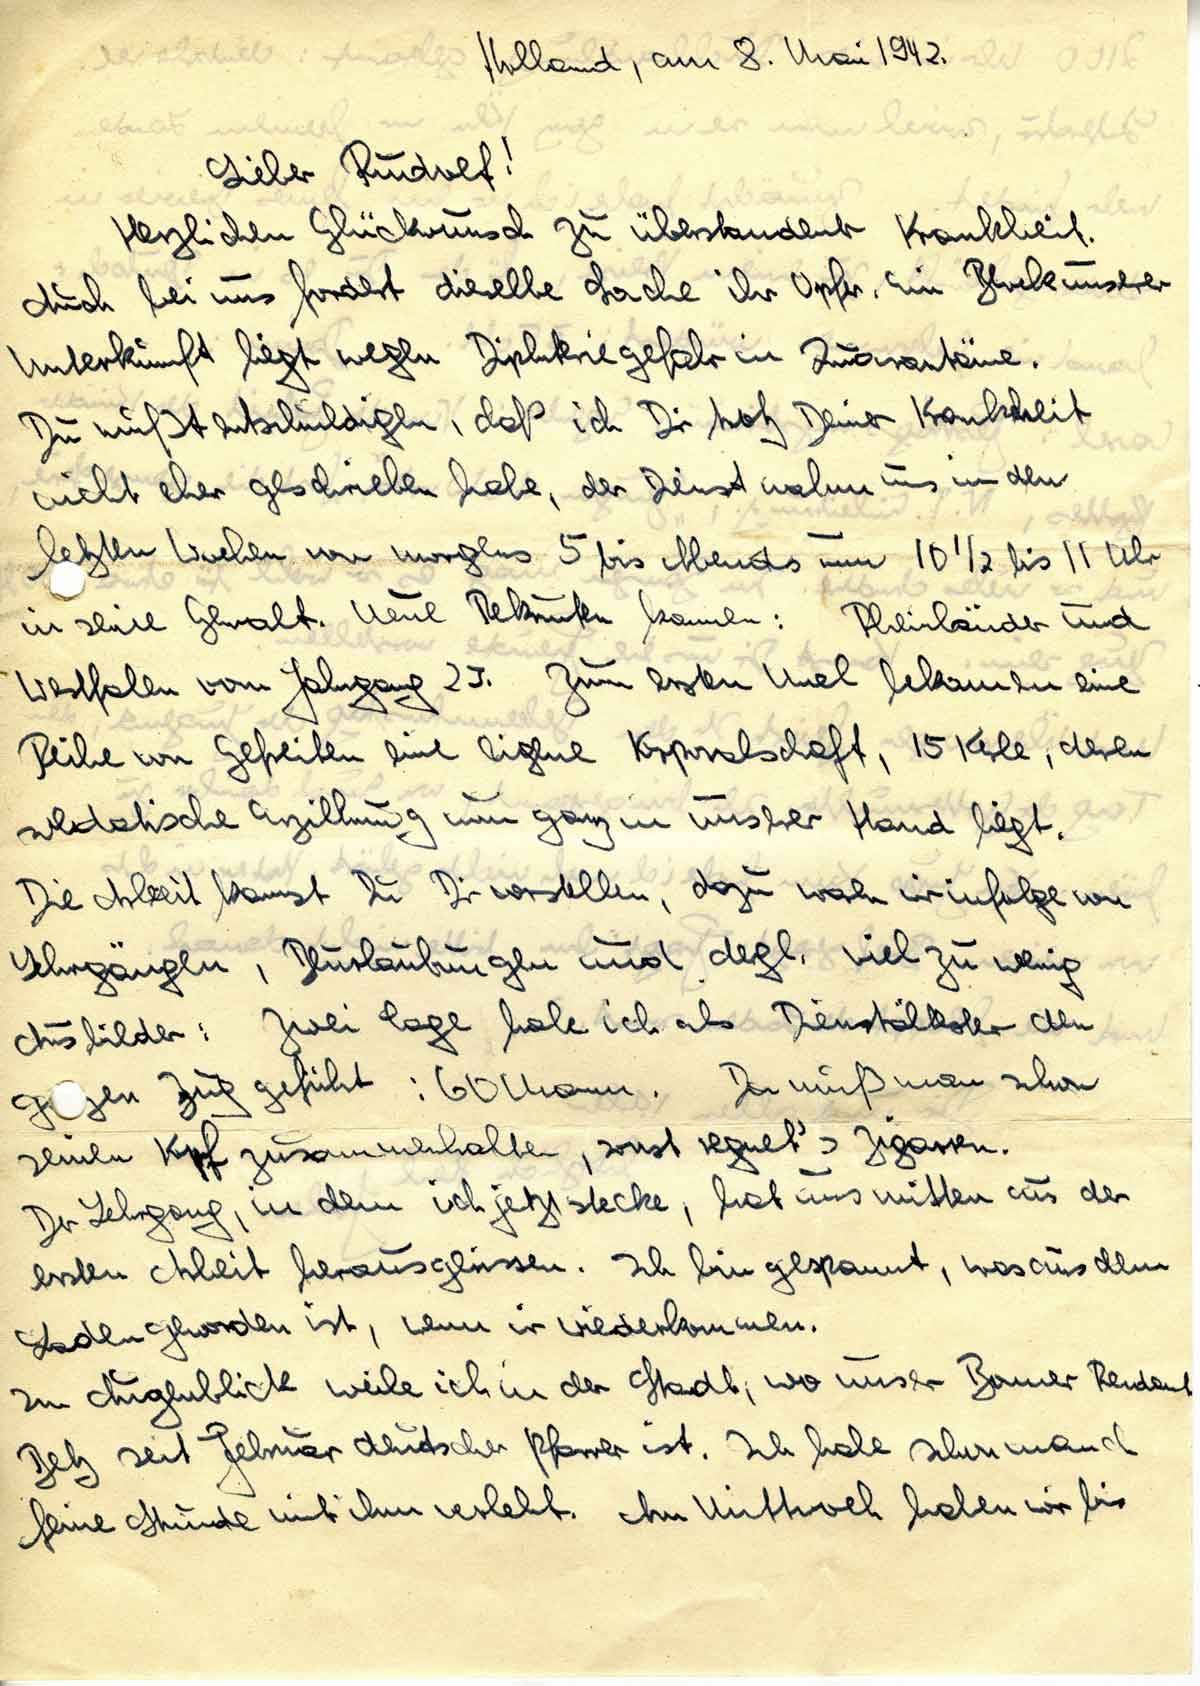 Holland, am 8. Mai 1942.
Lieber Rudolf!
Herzlichen Glückwunsch zu überstandener Krankheit.
Auch bei uns fordert dieselbe Sache ihr Opfer, ein Block unserer
Unterkunft liegt wegen Diphteriegefahr in Quarantäne.
Du mußt entschuldigen, daß ich Dir trotz Deiner Krankheit
nicht eher geschrieben habe, der Dienst nahm uns in den
letzten Wochen von morgens 5 bis Abends um 10 1/2 bis 11 Uhr
in seine Gewalt. Neue Rekruten kamen: Rheinländer und
Westfalen vom Jahrgang 23. Zum ersten Mal bekamen eine
Reihe von Gefreiten eine eigene Korporalschaft, 15 Kerle, deren
soldatische Erziehung nun ganz in unserer Hand liegt.
Die Arbeit kannst Du Dir vorstellen, dazu waren wir infolge von
Lehrgängen, Beurlaubungen und dergl. viel zu wenig
Ausbilder: Zwei Tage habe ich als Dienstältester den
ganzen Zug geführt: 60 Mann. Da muß man schon
seinen Kopf zusammenhalten, sonst regnet's Zigarren.
Der Lehrgang, in dem ich jetzt stecke, hat uns mitten aus der
ersten Arbeit herausgerissen. Ich bin gespannt, was aus dem
Laden geworden ist, wenn wir wiederkommen.
Im Augenblick weile ich in der Stadt, wo unser Bonner Rendant
Betz seit Februar deutscher Pfarrer ist. Ich habe schon manch
feine Stunde mit ihm verlebt. Am Mittwoch haben wir bis